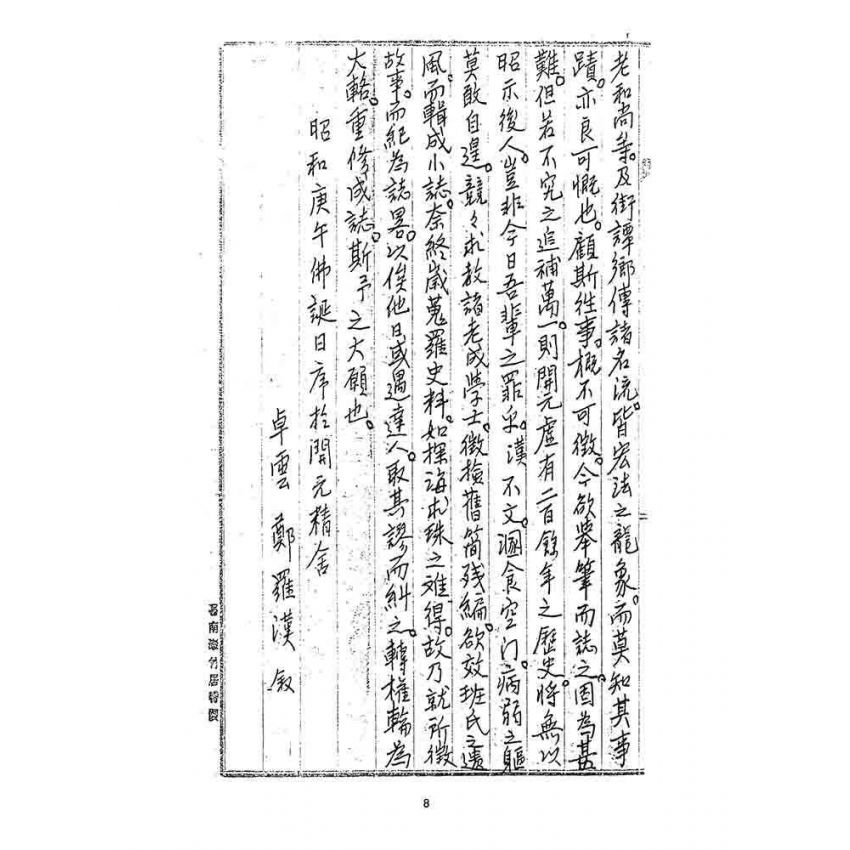 老和尚象。及街譚鄉傳諸名流。皆宏法之龍象。而莫知其事
蹟。亦良可慨也。顧斯往事。概不可徵。今欲舉筆而誌之。固為甚
難。但若不究之追補萬一。則開元虛有二百餘年之歷史。將無以
昭示後人。豈非今日吾輩之罪乎。漢不文。溷食空门。病弱之軀
莫敢自遑。競々求教諸老成學士。徵撿舊简残編。欲效班氏之遺
風。而輯成小誌。奈終歲蒐羅史料。如探海求珠之难得。故乃就所徵
故事。而紀為誌畧。以俟他日。或遇達人。取其謬而糾之。轉權輪為
大輅。重修成誌。斯予之大願也。
昭和庚午佛誕日序於開元精舍
卓雲 鄭羅漢 敘
8